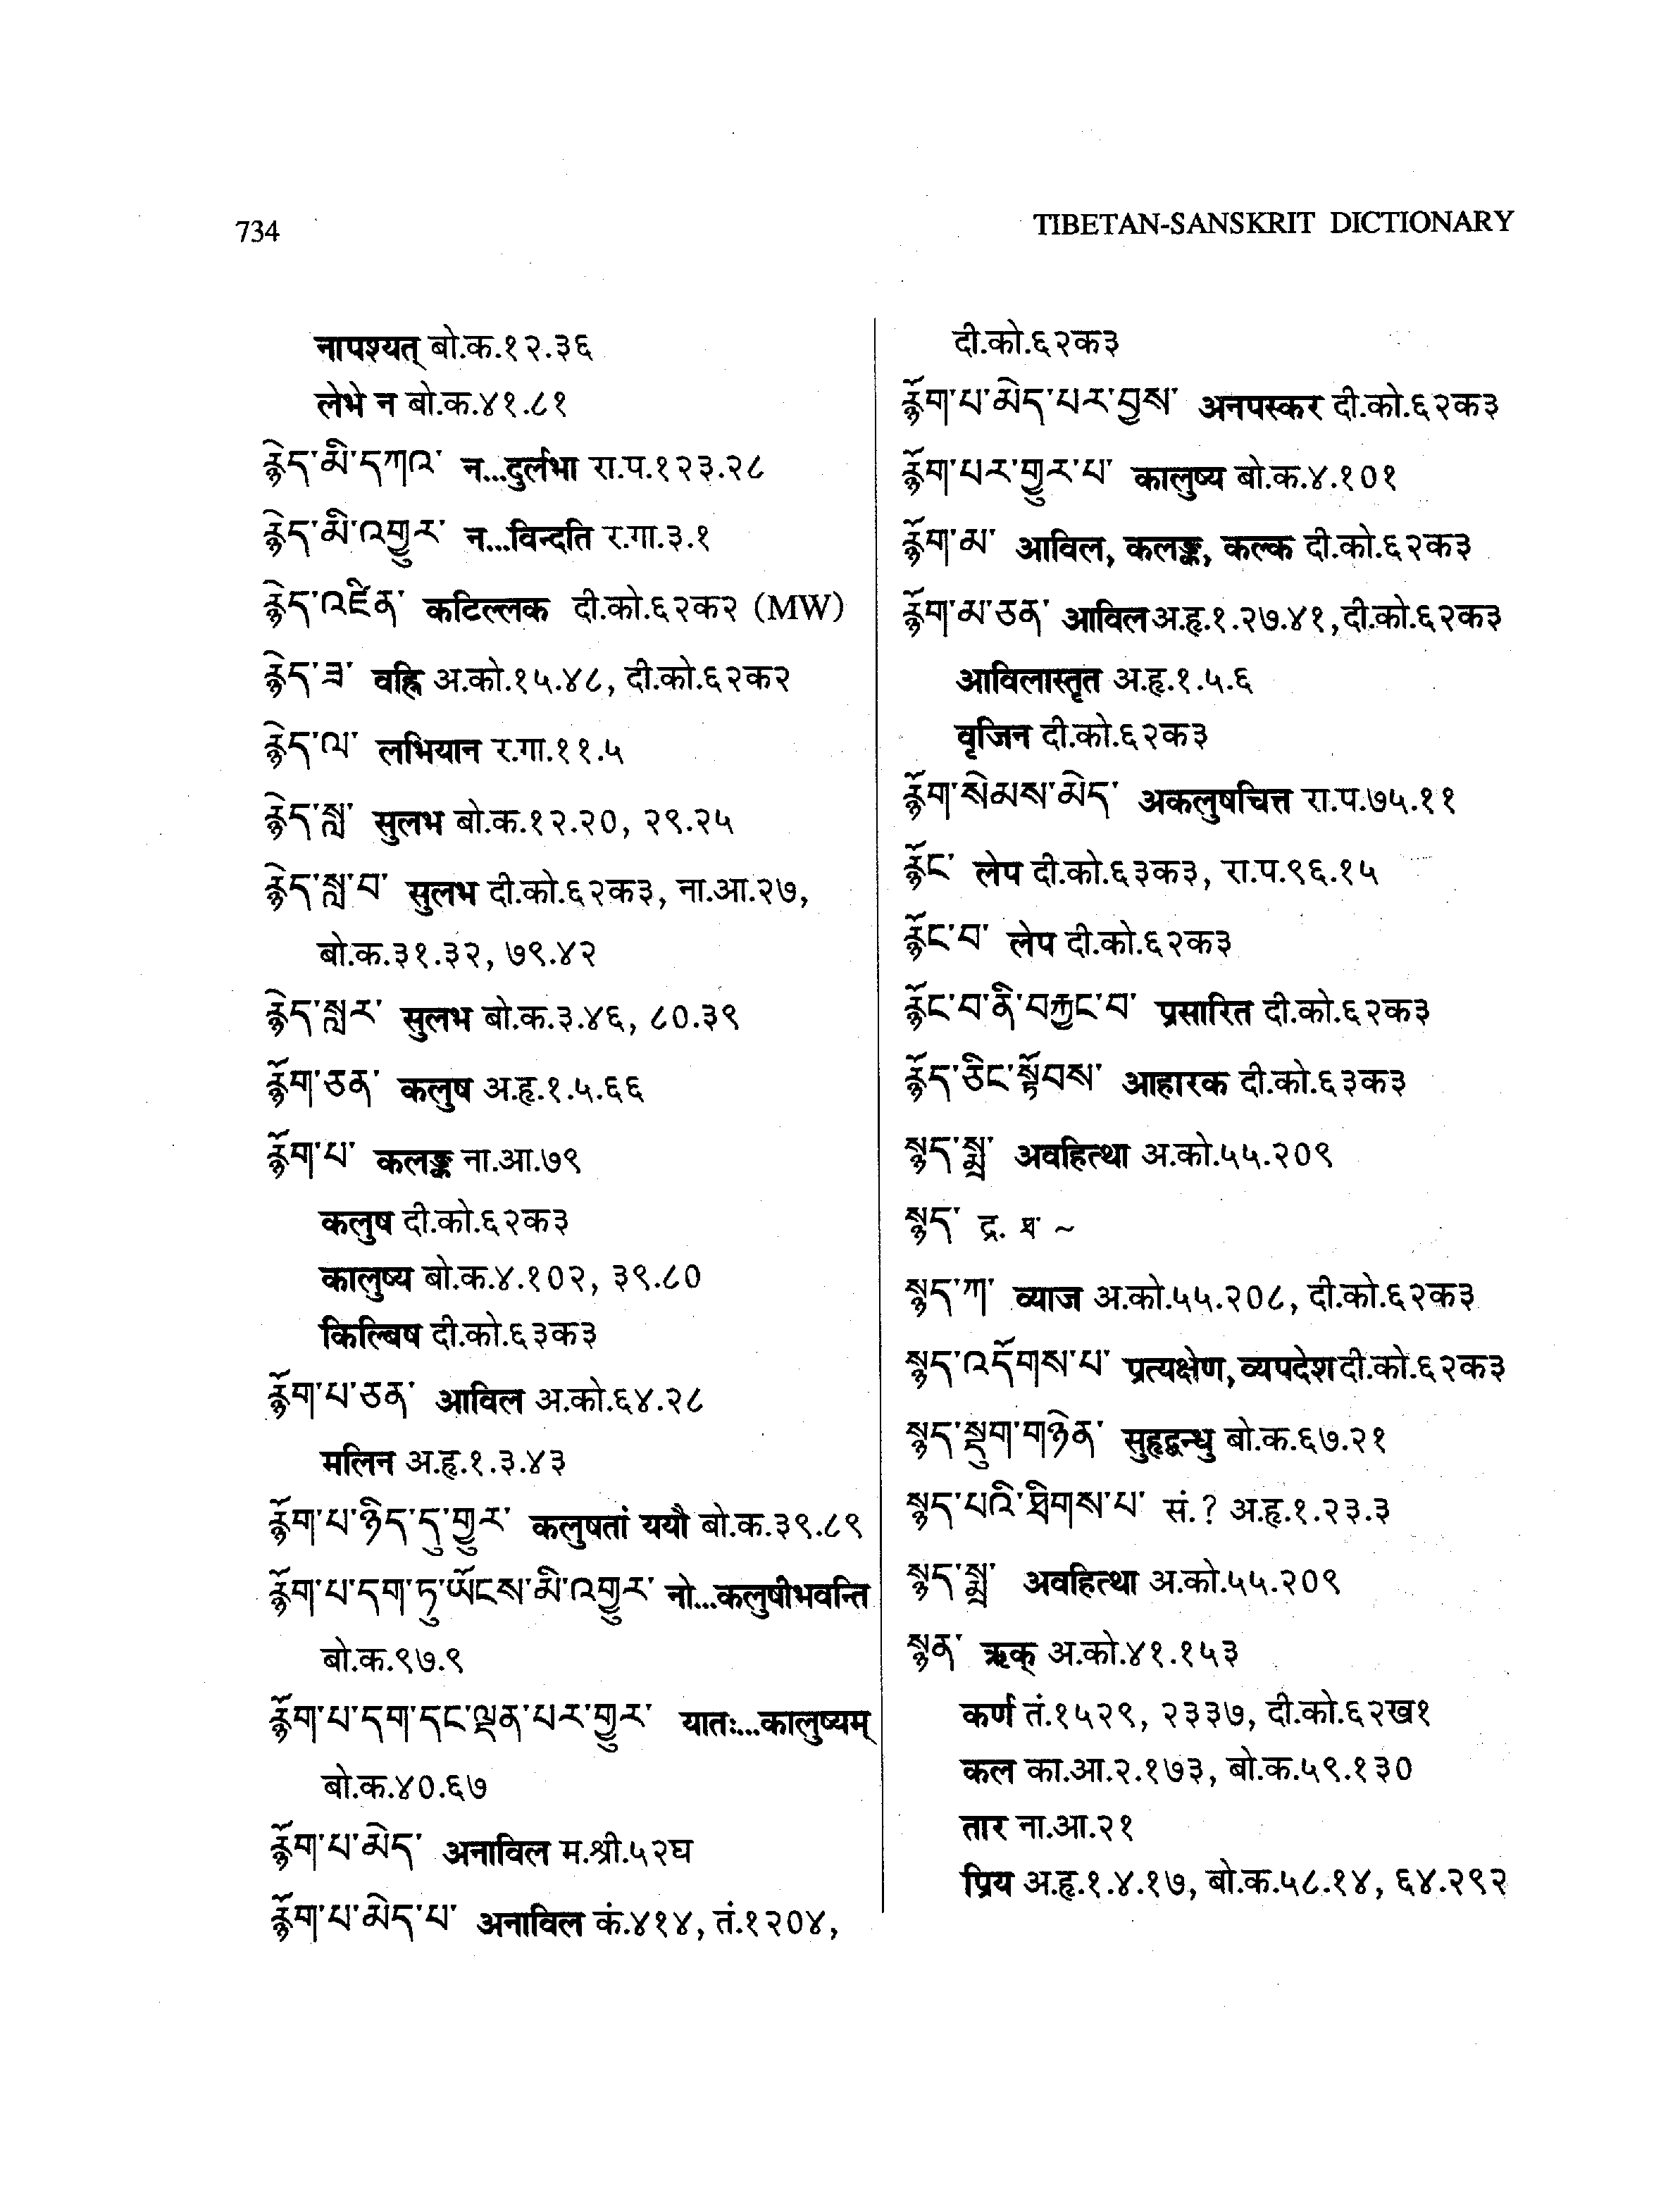 734
TIBETAN-SANSKRIT DICTIONARY
नापश्यत् बो.क.१२.३६
लेभे न बो.क.४१.८१
རྙེད་མི་དཀའ་ न...दुर्लभा रा.प.१२३.२८
རྙེད་མི་འགྱུར་ न...विन्दति र.गा.३.१
རྙེད་འཛིན་ कटिल्लक दी.को.६२क२ (MW)
རྙེད་ཟ་ वह्नि अ.को.१५.४८, दी.को.६२क२
རྙེད་ལ་ लभियान र.गा.११.५
རྙེད་སླ་ सुलभ बो.क.१२.२०, २९.२५
རྙེད་སླ་བ་ सुलभ दी.को.६२क३, ना.आ.२७,
बो.क.३१.३२, ७९.४२
རྙེད་སླར་ सुलभ बो.क.३.४६, ८०.३९
རྙོག་ཅན་ कलुष अ.हृ.१.५.६६
རྙོག་པ་ कलङ्क ना.आ.७९
कलुष दी.को.६२क३
कालुष्य बो.क.४.१०२, ३९.८०
किल्बिष दी.को.६३क३
རྙོག་པ་ཅན་ आविल अ.को.६४.२८
मलिन अ.हृ.१.३.४३
རྙོག་པ་ཉིད་དུ་གྱུར་ कलुषतां ययौ बो.क.३९.८९
རྙོག་པ་དག་ཏུ་ཡོངས་མི་འགྱུར་ नो...कलुषीभवन्ति
बो.क.९७.९
རྙོག་པ་དག་དང་ལྡན་པར་གྱུར་ यातः...कालुष्यम्
बो.क.४०.६७
རྙོག་པ་མེད་ अनाविल म.श्री.५२घ
རྙོག་པ་མེད་པ་ अनाविल कं.४१४, तं.१२०४,
दी.को.६२क३
རྙོག་པ་མེད་པར་བྱས་ अनपस्कर दी.को.६२क३
རྙོག་པར་གྱུར་པ་ कालुष्य बो.क.४.१०१
རྙོག་མ་ आविल, कलङ्क, कल्क दी.को.६२क३
རྙོག་མ་ཅན་ आविल अ.हृ.१.२७.४१, दी.को.६२क३
आविलास्तृत अ.हृ.१.५.६
वृजिन दी.को.६२क३
རྙོག་སེམས་མེད་ अकलुषचित्त रा.प.७५.११
རྙོང་ लेप दी.को.६३क३, रा.प.९६.१५
རྙོང་བ་ लेप दी.को.६२क३
རྙོང་བ་ནི་བརྐྱང་བ་ प्रसारित दी.को.६२क३
རྙོད་ཅིང་སྟོབས་ आहारक दी.को.६३क३
སྙད་སྨྲ་ अवहित्था अ.को.५५.२०९
སྙད་ द्र. ཐ་ ~
སྙད་ཀ་ व्याज अ.को.५५.२०८, दी.को.६२क३
སྙད་འདོགས་པ་ प्रत्यक्षेण, व्यपदेश दी.को.६२क३
སྙད་སྡུག་གཉེན་ सुहृद्बन्धु बो.क.६७.२१
སྙད་པའི་ཐིགས་པ་ सं.? अ.हृ.१.२३.३
སྙད་སྨྲ་ अवहित्था अ.को.५५.२०९
སྙན་ ऋक् अ.को.४१.१५३
कर्ण तं.१५२९, २३३७, दी.को.६२ख१
कल का.आ.२.१७३, बो.क.५९.१३०
तार ना.आ.२१
प्रिय अ.हृ.१.४.१७, बो.क.५८.१४, ६४.२९२